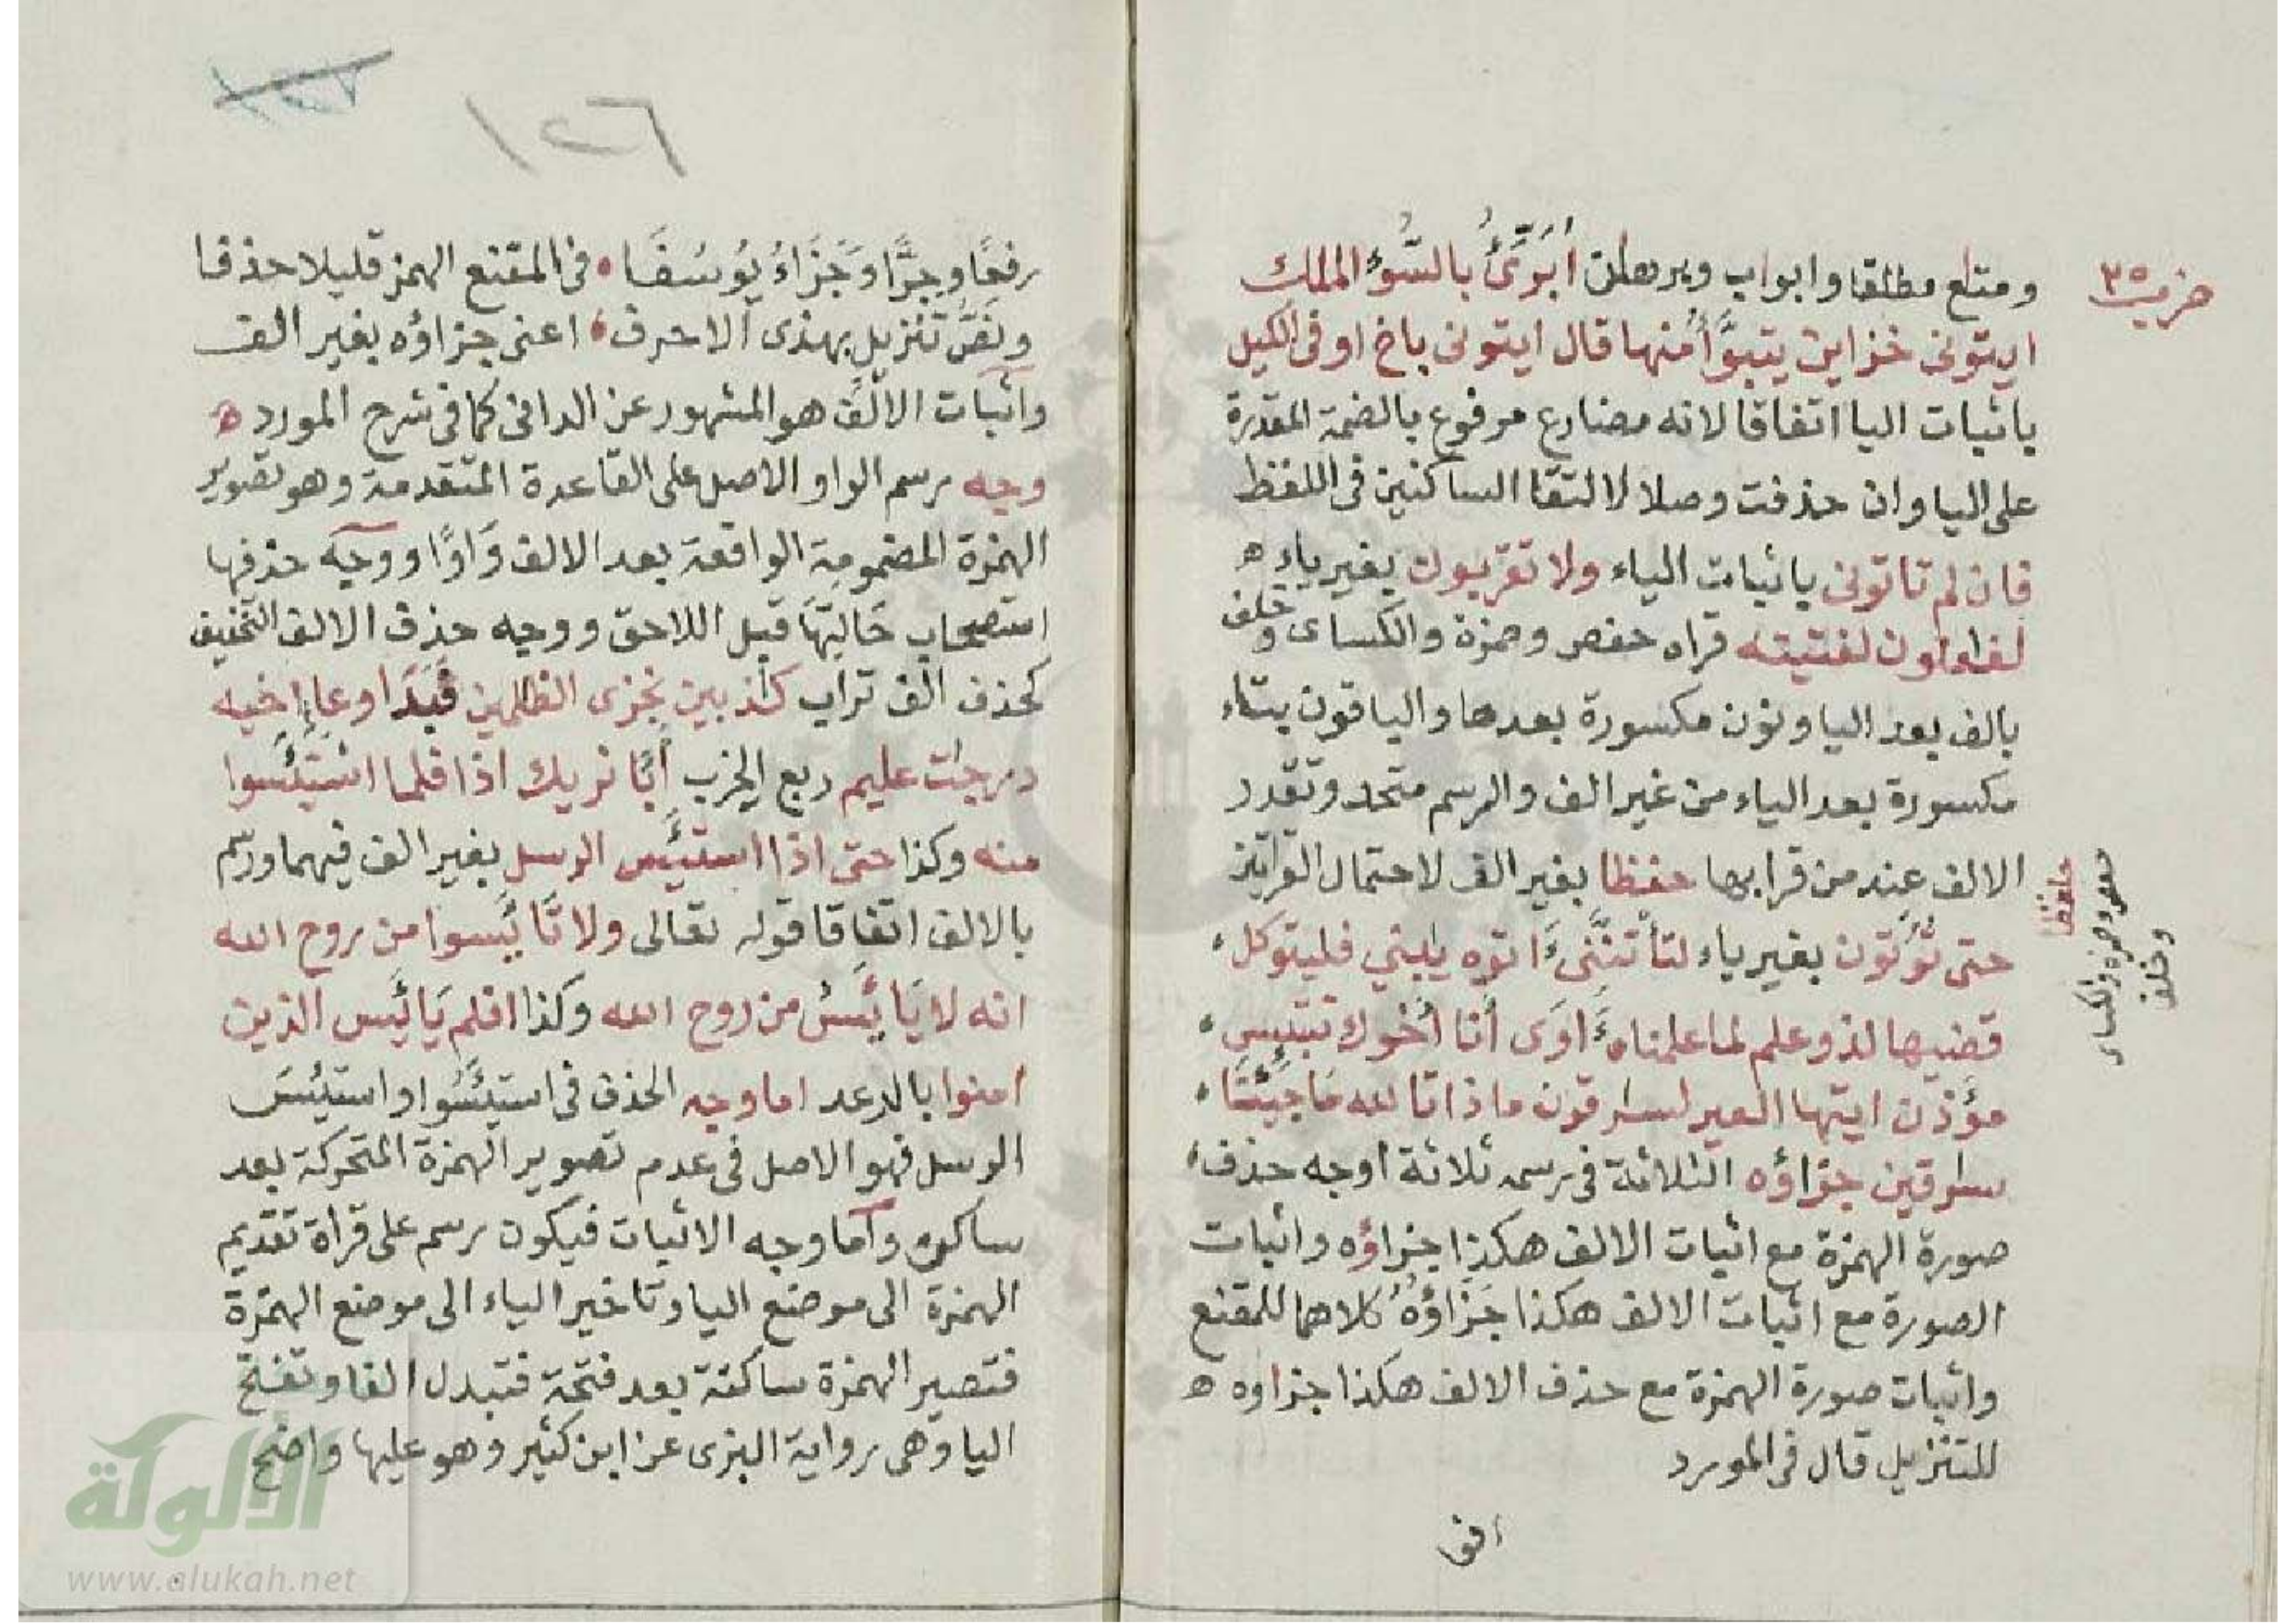 حزب ٣٥
ومتاع مطلقا وابواب وبرهان أُبَرِّئُ بالسُّوۤءِ الملك
ايتونى خزاين يتبوَّأُ منها قال ايتونى باخ اوفى الكيل
باثبات اليا اتفاقا لانه مضارع مرفوع بالضمة المقدرة
على اليا وان حذفت وصلا لالتقا الساكنين فى اللفظ
فان لم تاتونى باثبات الياء ولا تقربون بغير ياء ه
لفاعلون لفتيته قراه حفص وحمزة والكساى وخلف
بالف بعد اليا ونون مكسورة بعدها والباقون بتاء
مكسورة بعد الياء من غير الف والرسم متحد وتقدر
الالف عند من قرا بها حفظا بغير الف لاحتمال القراتين
حافظا
حفص وحمزة والكساى
وخلف
حتى تُؤْتون بغير ياء لتأتنَّنىءَ اتوه يٰبني فليتوكل
قضيها لذو علم لما علمناهءَ اوَى أَنا أخوك تبتىس
مؤذن ايتها العير لسارقون ماذا تالله مَا جِئْتَا
سارقين جزاؤه الثلاثة فى رسمه ثلاثة اوجه حذف
صورة الهمزة مع اثبات الالف هكذا جزاؤه واثبات
الصورة مع اثبات الالف هكذا جَزَاؤُهُ كلاهما للمقنع
واثبات صورة الهمزة مع حذف الالف هكذا جزاوه ه
للتنزيل قال فى المورد
١٢٦
رفعًا وجرًّا وَجَزَاءُ يُوسُفَا • فى المقنع الهمز قليلا حذفا
ونَصُّ تنزيلٍ بهذى الاحرف • اعنى جزاؤه بغير الف
واثبات الالف هو المشهور عن الدانى كما فى شرح المورد ه
وجه رسم الواو الاصل على القاعدة المتقدمة وهو تصوير
الهمزة المضمومة الواقعة بعد الالف وَاوًا ووجه حذفها
استصحاب حَالِتهَا قبل اللاحق ووجه حذف الالف التخفيف
كحذف الف تراب كٰذبين نجزى الظٰلمين فَبَدَا وعاإِ اخيه
درجٰت عليم ربع الحزب أَبًا نريك اذا فلما اسْتَيْئَسوا
منه وكذا حتى اذا استَيْئَس الرسل بغير الف فيهما ورسم
بالالف اتفاقا قوله تعالى ولا تَايْئَسوا من روح الله
انه لا يَايْئَسُ من روح الله وكذا افلم يَايْئَس الذين
امنوا بالرعد اما وجه الحذف فى استَيْئَسُوا واستَيْئسَ
الرسل فهو الاصل فى عدم تصوير الهمزة المتحركة بعد
ساكن وأما وجه الاثبات فيكون رسم على قراة تقديم
الهمزة الى موضع اليا وتاخير الياء الى موضع الهمزة
فتصير الهمزة ساكنة بعد فتحة فتبدل الفا وتفتح
اليا وهى رواية البزى عن ابن كثير وهو عليها واضح
الألوكة
www.alukah.net